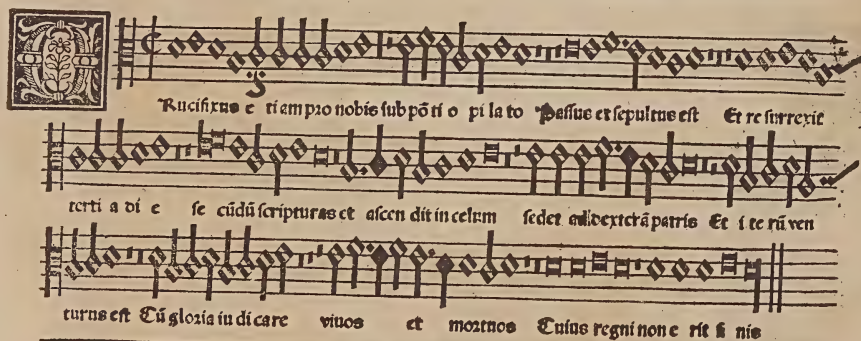 CRucifixus e ti am pro nobis sub põ ti o pi la to Passus et sepultus est Et re surrexit
terti a di e se cũdũ scripturas et ascen dit in celum sedet ad dexterã patris Et i te rũ ven
turus est Cũ gloria iu di care vivos et mortuos Cuius regni non e rit fi nis